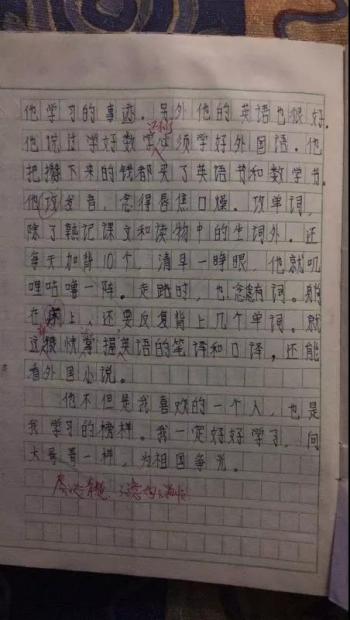 他学习的事迹。另外他的英语也很好。
他说过学好数学必须学好外国语。他
把攒下来的钱都买了英语书和数学书。
他攻发音，念得唇焦口燥。攻单词，
除了熟记课文和读物中的生词外，还
每天加背10个，清早一睁眼，他就叽
哩咕噜一阵。走路时，也念念有词。躺
在床上，还要反复背上几个单词。就
这样很快掌握英语的笔译和口译，还能
看外国小说。
他不但是我喜欢的一个人，也是
我学习的榜样。我一定好好学习，向
大哥哥一样，为祖国争光。